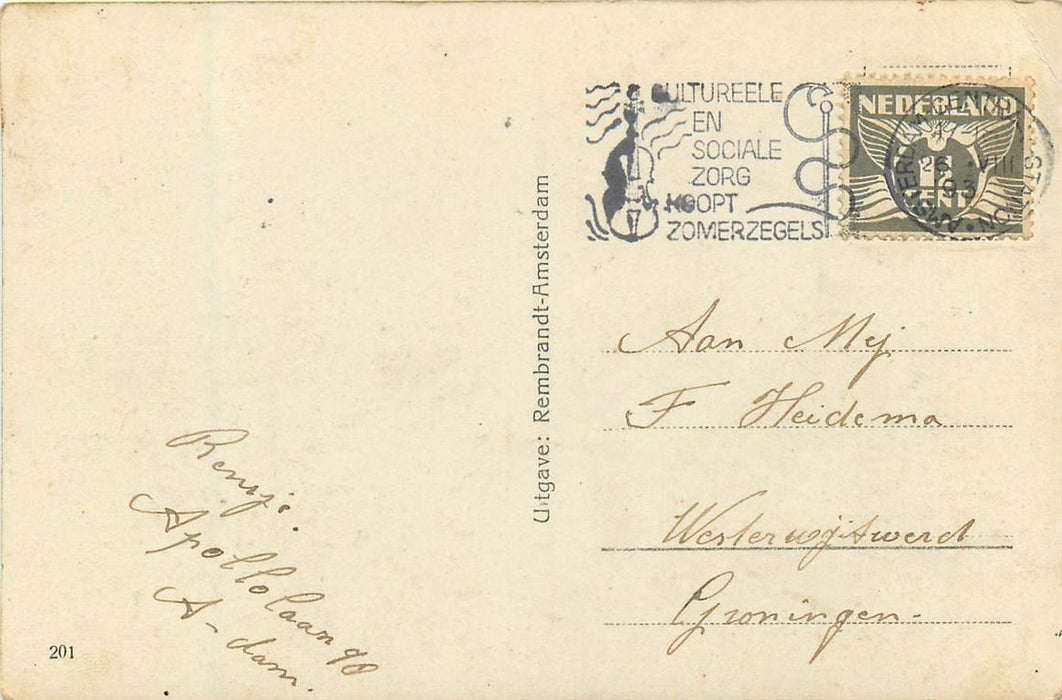 CULTUREELE
EN
SOCIALE
ZORG
KOOPT
ZOMERZEGELS
NEDERLAND
1½
CENT
AMSTERDAM CENTRAAL STATION
26 VIII
193
Uitgave: Rembrandt-Amsterdam
Aan Mej
F Heidema
Westerwijtwerd
Groningen-
Apollolaan 98
A-dam.
201